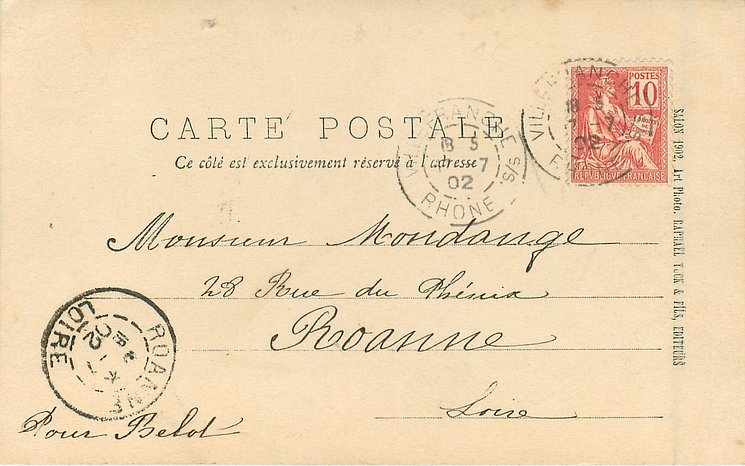 CARTE POSTALE
Ce côté est exclusivement réservé à l'adresse
VILLEFRANCHE S/S
5
7
02
RHONE
POSTES
10
REPUBLIQUE FRANCAISE
VILLEFRANCHE
02
SALON 1902. Art Photo. RAPHAEL TUCK & FILS, EDITEURS
Monsieur Mondange
28 Rue du Phénix
Roanne
Loire
Pour Belot
ROANNE
02
LOIRE